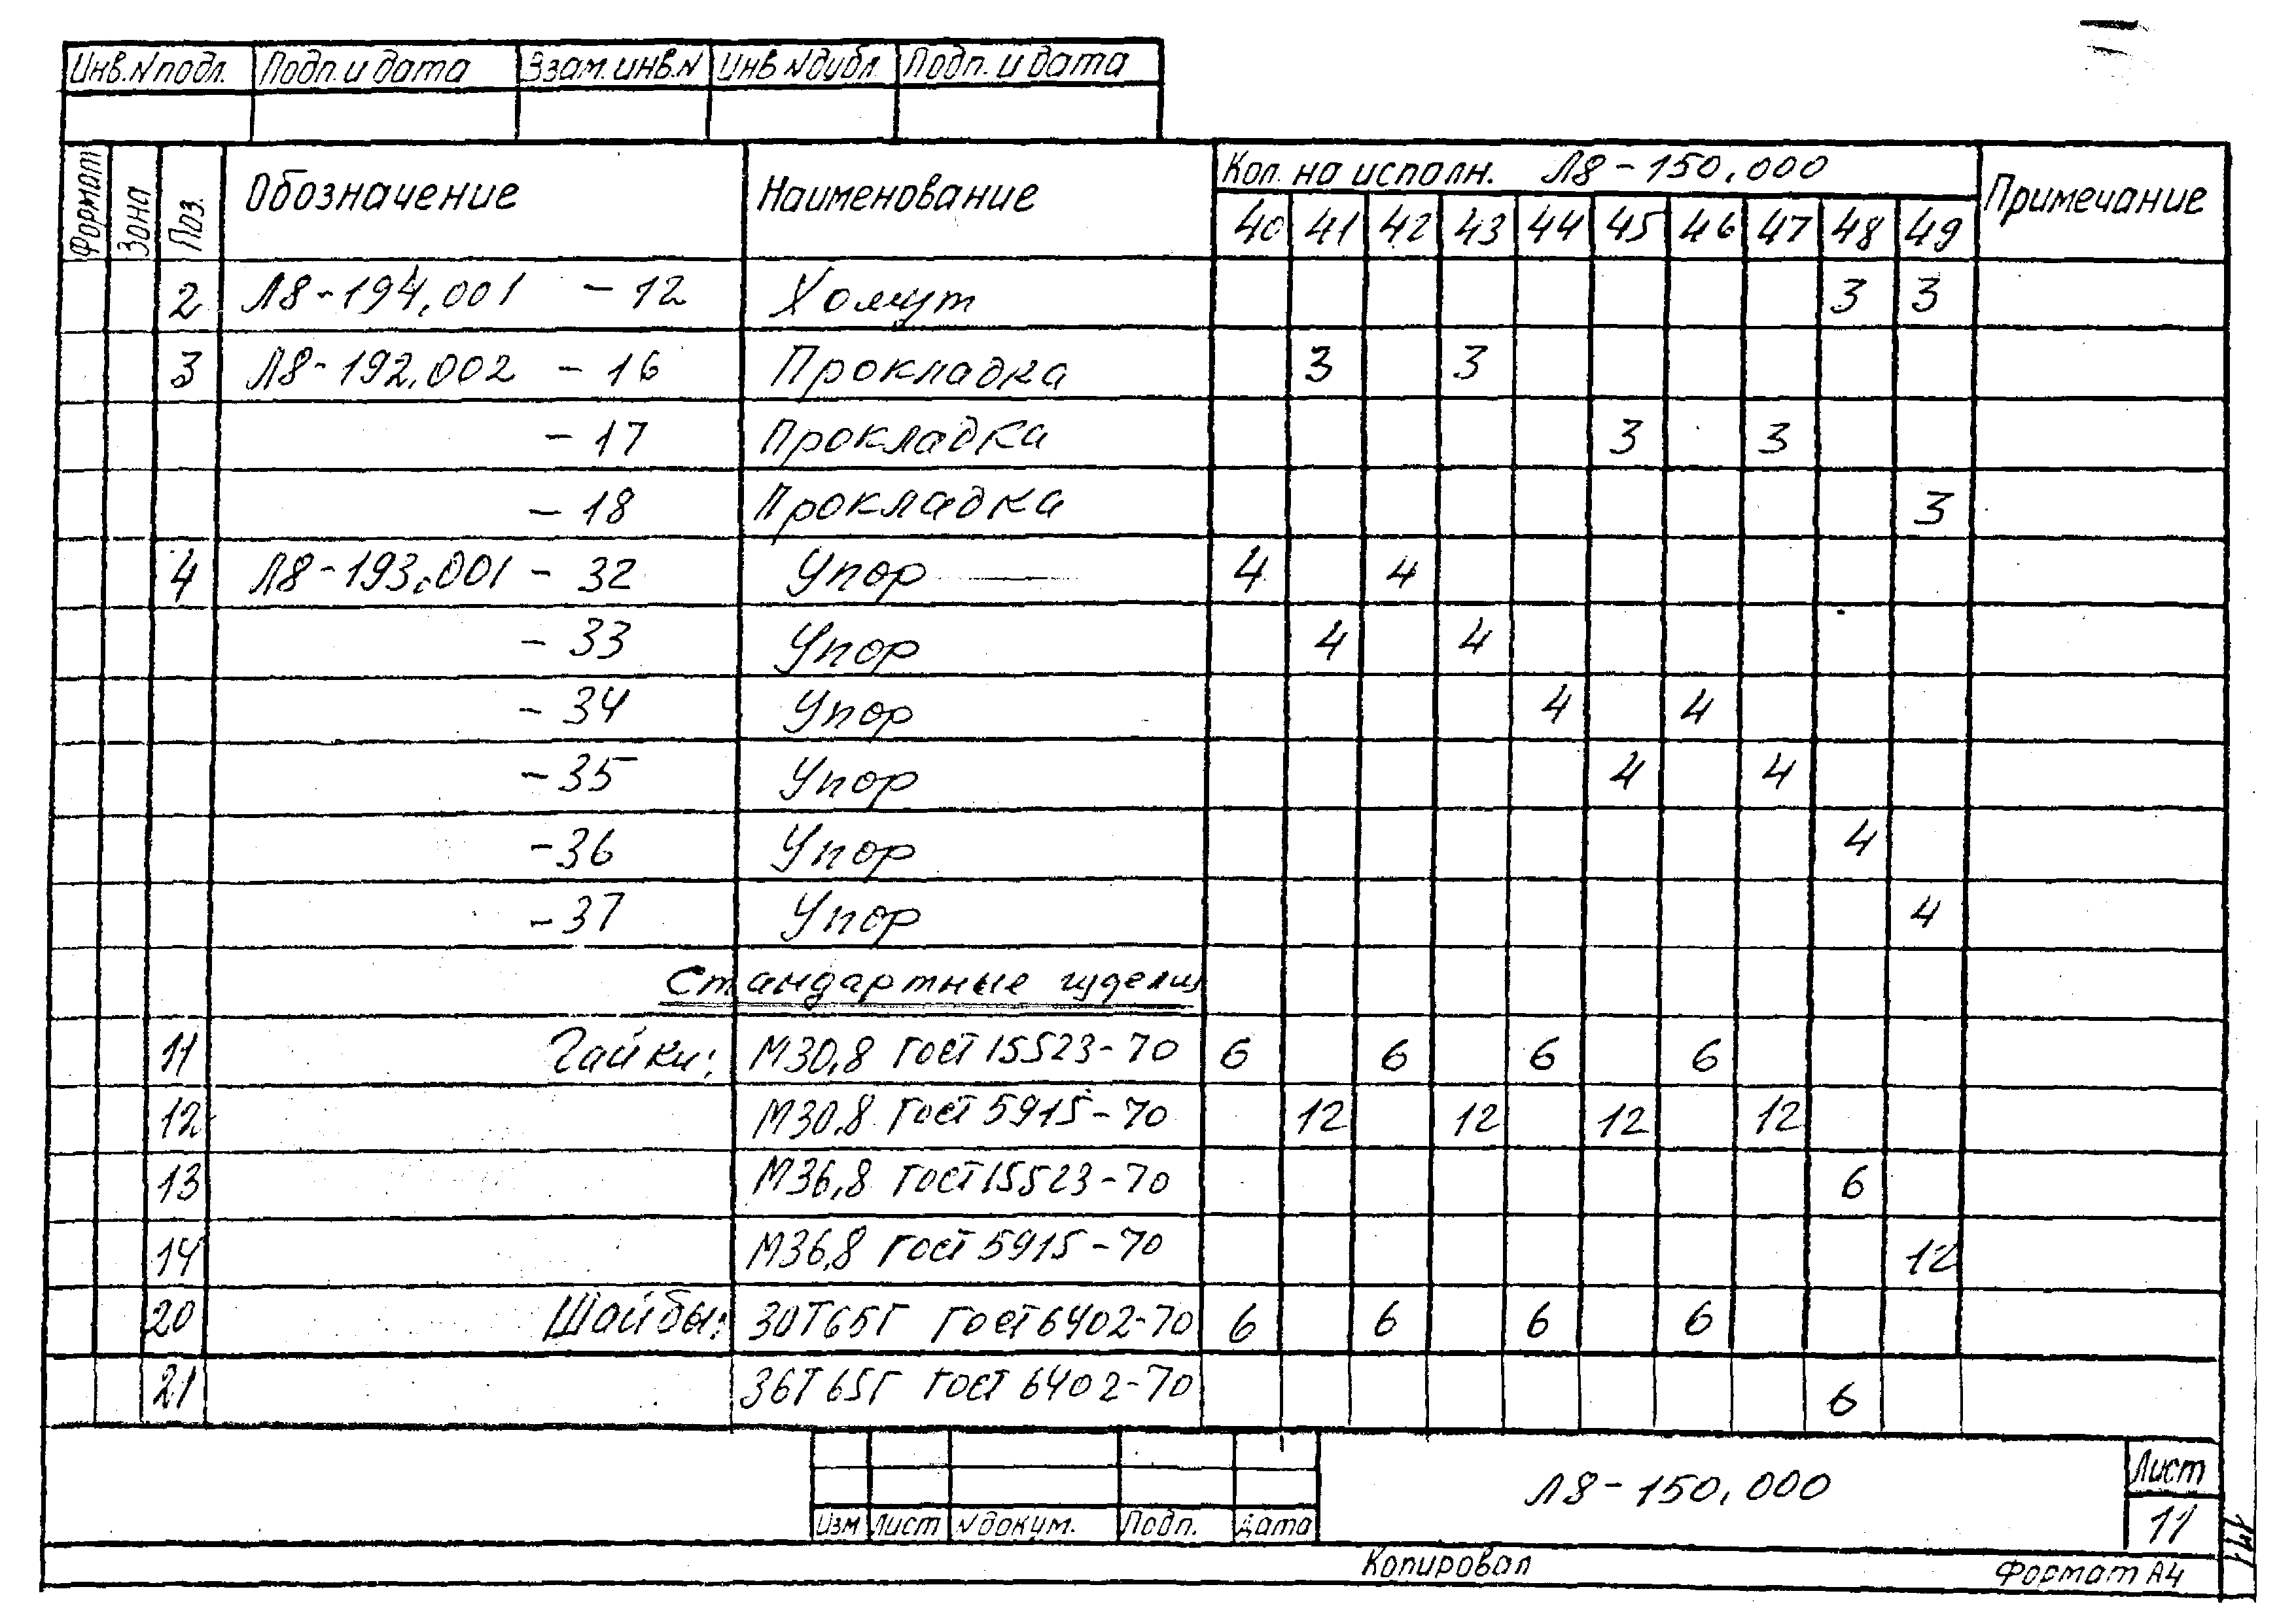 Инв.№подл. Подп. и дата Взам. инв.№ Инв №дубл. Подп. и дата
Формат Зона Поз. Обозначение Наименование Кол. на исполн. Л8-150,000 Примечание
40 41 42 43 44 45 46 47 48 49
2 Л8-194,001 -12 Хомут 3 3
3 Л8-192,002 -16 Прокладка 3 3
-17 Прокладка 3 3
-18 Прокладка 3
4 Л8-193,001 -32 Упор 4 4
-33 Упор 4 4
-34 Упор 4 4
-35 Упор 4 4
-36 Упор 4
-37 Упор 4
Стандартные изделия
11 Гайки: М30,8 ГОСТ 15523-70 6 6 6 6
12 М30,8 ГОСТ 5915-70 12 12 12 12
13 М36,8 ГОСТ 15523-70 6
14 М36,8 ГОСТ 5915-70 12
20 Шайбы: 30Т65Г ГОСТ 6402-70 6 6 6 6
21 36Т65Г ГОСТ 6402-70 6
Изм Лист № докум. Подп. Дата Л8-150,000 Лист
11
Копировал Формат А4